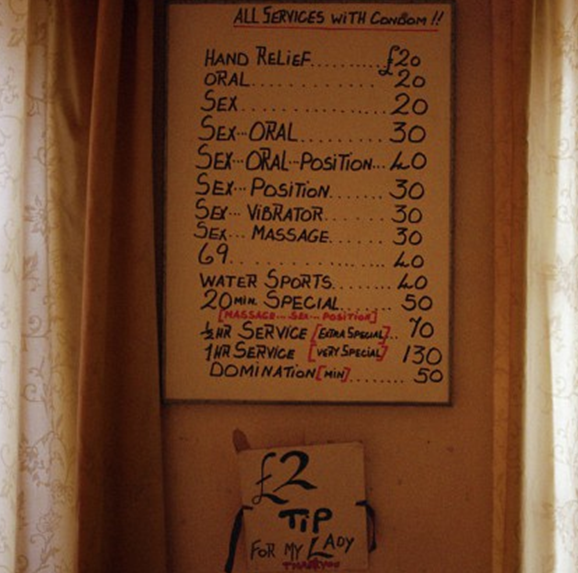 ALL SERVICES WITH CONDOM !!
HAND RELIEF.......... £20
ORAL............... 20
SEX............... 20
SEX...ORAL........... 30
SEX...ORAL...POSITION... 40
SEX... POSITION........ 30
SEX... VIBRATOR........ 30
SEX... MASSAGE....... 30
69............... 40
WATER SPORTS....... 40
20 MIN. SPECIAL....... 50
[MASSAGE... SEX... POSITION]
½ HR SERVICE [EXTRA SPECIAL]... 70
1 HR SERVICE [VERY SPECIAL] 130
DOMINATION [MIN]........ 50
£2
TIP
FOR MY LADY
THANKYOU